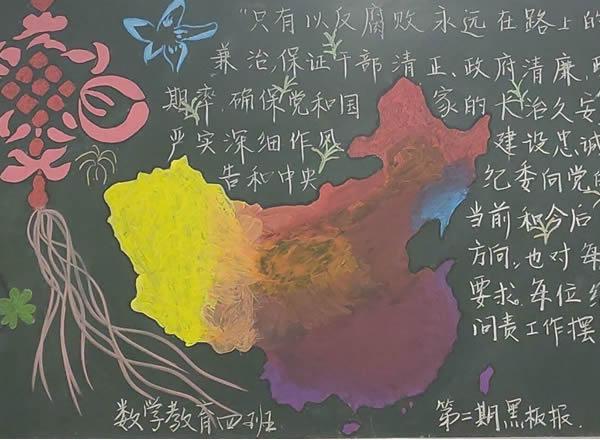 "只有以反腐败永远在路上的
兼治,保证干部清正、政府清廉,
期率,确保党和国家的大治久安
严实深细作风 建设忠诚
告和中央 纪委向党的
当前和今后
方向,也对每
要求。每位
问责工作摆
数学教育四班 第二期黑板报.